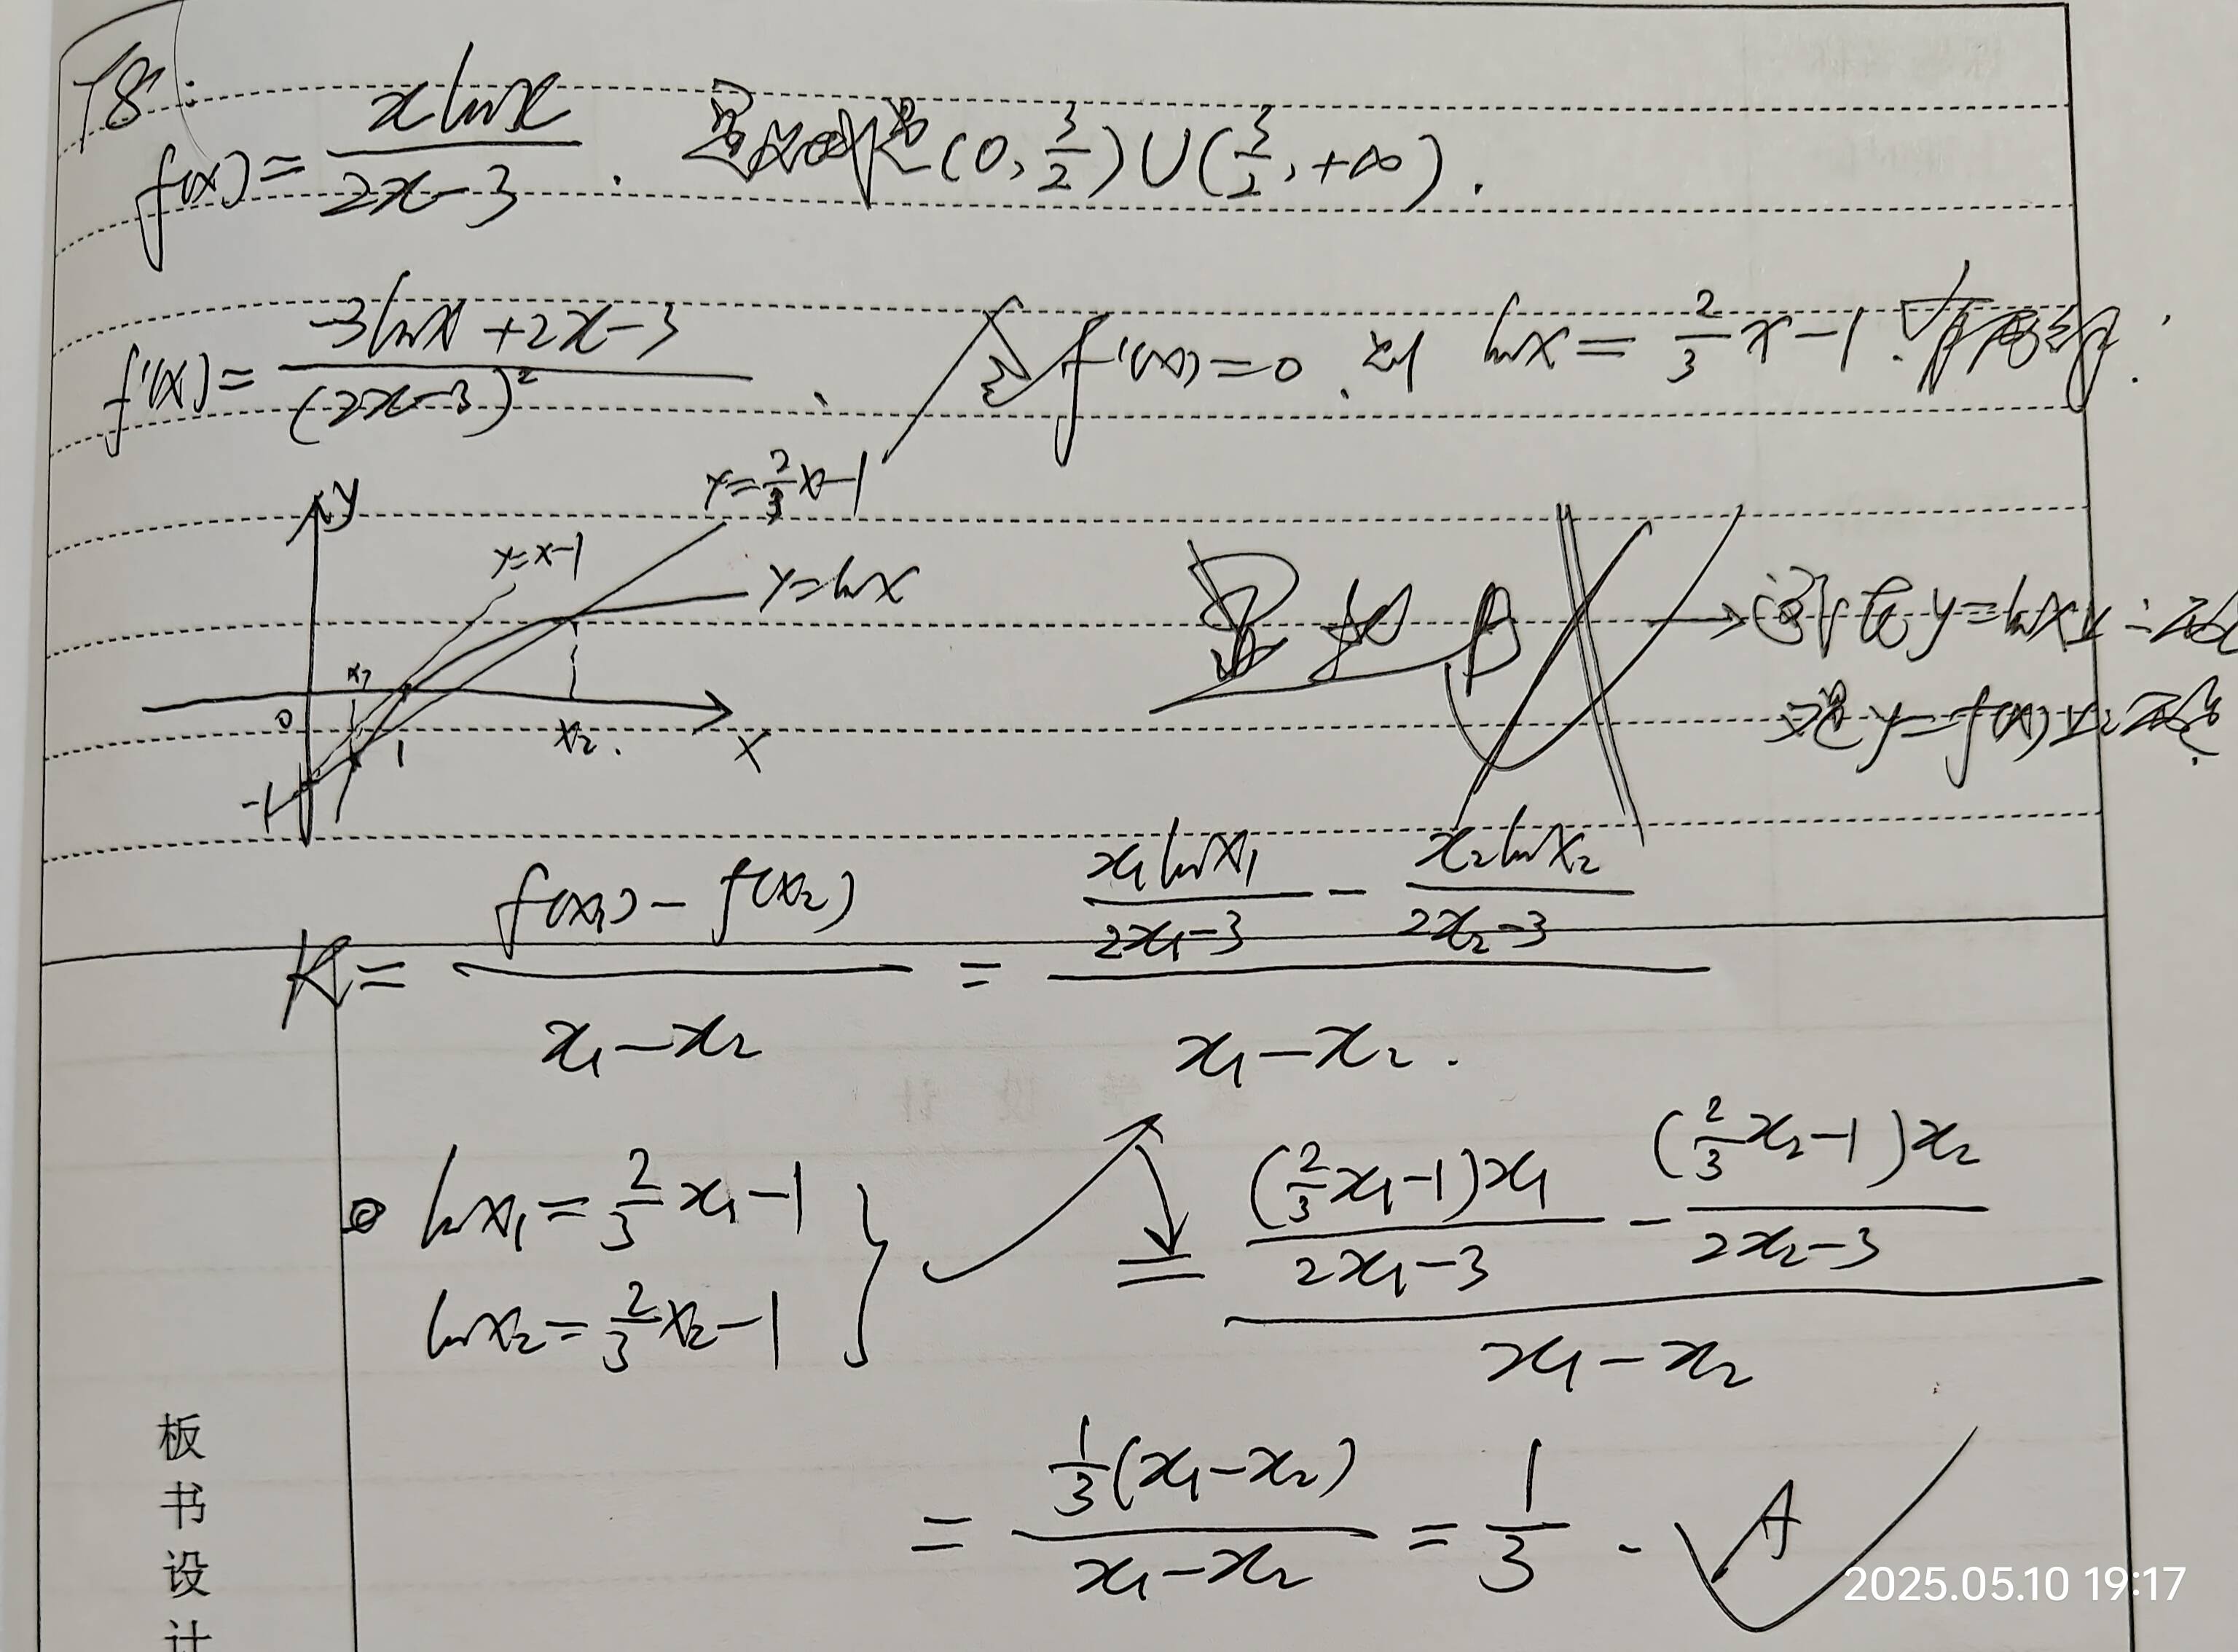 T8:
f(x)= x lnx / (2x-3) . 定义域是(0, 3/2)∪(3/2, +∞).
f'(x)= (-3lnx+2x-3) / (2x-3)² 、 令f'(x)=0. 则 lnx= 2/3 x-1. 有两解.
y y=2/3 x-1
y=x-1
y=lnx
x₁
0 1 x₂. x
-1
显然 B
y=lnx上
y=f(x)上
K= (f(x₁)-f(x₂)) / (x₁-x₂) = (x₁lnx₁/(2x₁-3) - x₂lnx₂/(2x₂-3)) / (x₁-x₂) .
lnx₁= 2/3 x₁-1
lnx₂= 2/3 x₂-1 }
= ((2/3 x₁-1)x₁/(2x₁-3) - (2/3 x₂-1)x₂/(2x₂-3)) / (x₁-x₂)
= 1/3(x₁-x₂) / (x₁-x₂) = 1/3 . A
板
书
设
计
2025.05.10 19:17